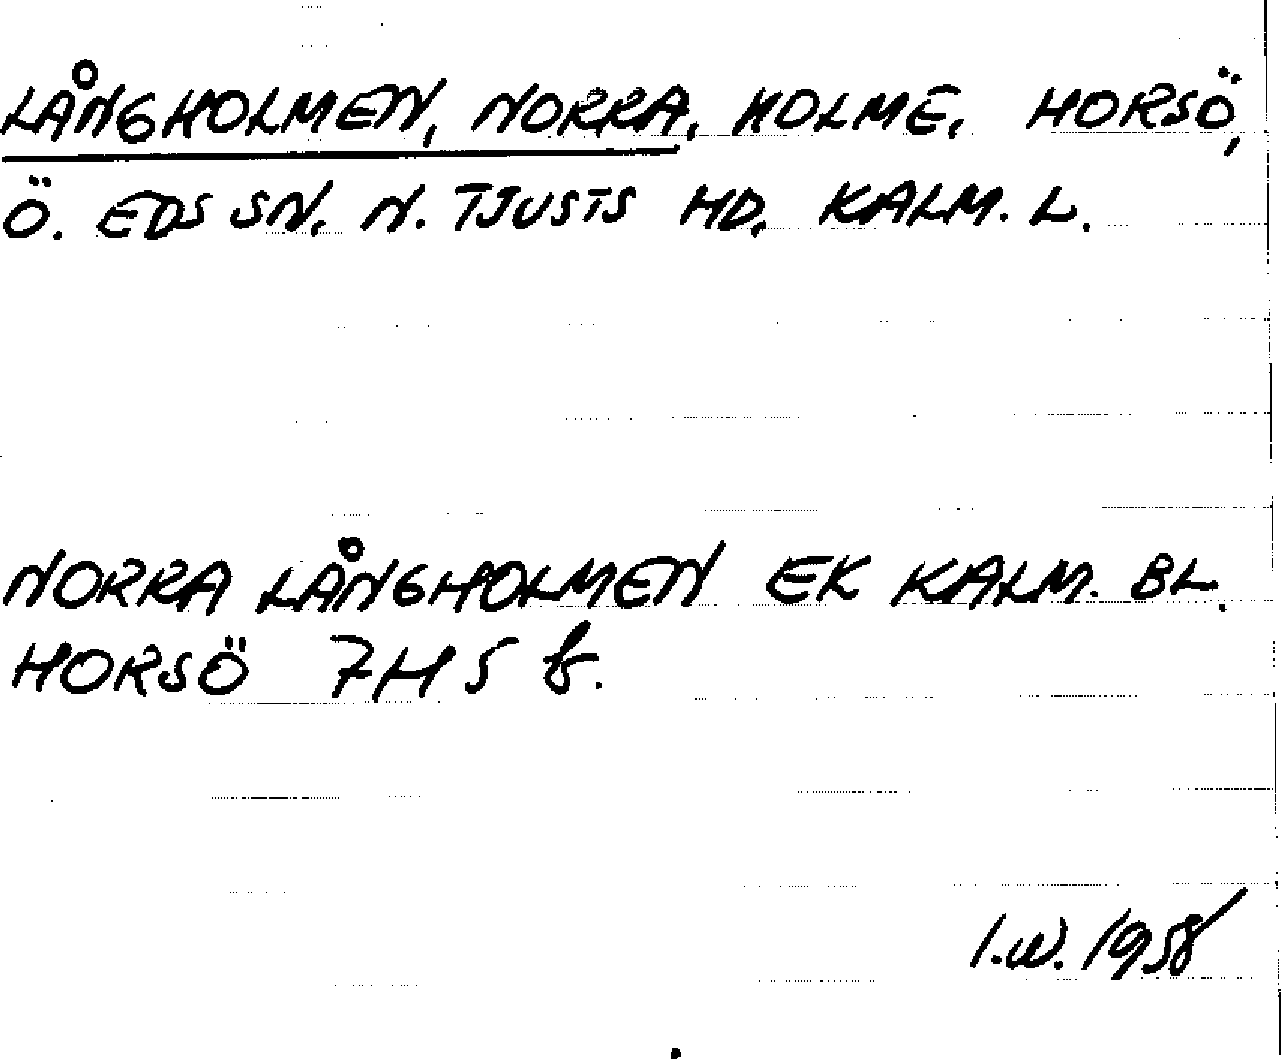 LÅNGHOLMEN, NORRA, HOLME, HORSÖ,
Ö. EDS SN. N. TJUSTS HD. KALM. L.
NORRA LÅNGHOLMEN EK KALM. BL.
HORSÖ 7H5 b.
I.W. 1958